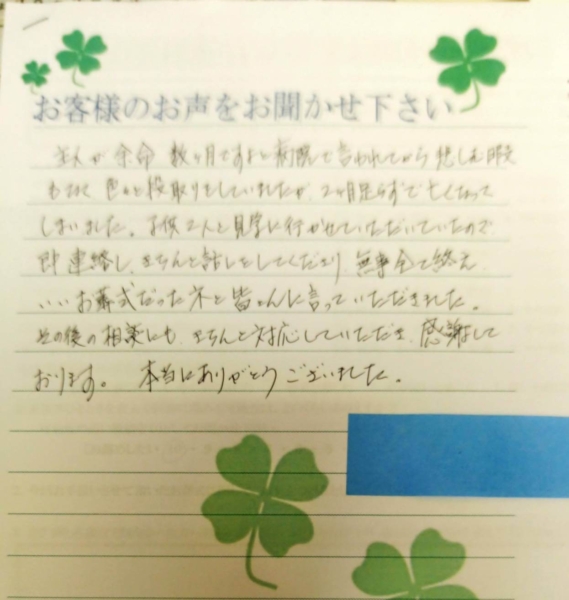 お客様のお声をお聞かせ下さい
主人が余命数ヶ月ですよと病院で言われてから悲しむ暇
もなく色々と段取りをしていましたが、2ヶ月足らずで亡くなって
しまいました。子供2人と見学に行かせていただいていたので
即連絡し、きちんと話しをしてくださり無事全て終え、
いいお葬式だったネと皆さんに言っていただきました。
その後の相談にも、きちんと対応していただき、感謝して
おります。 本当にありがとうございました。